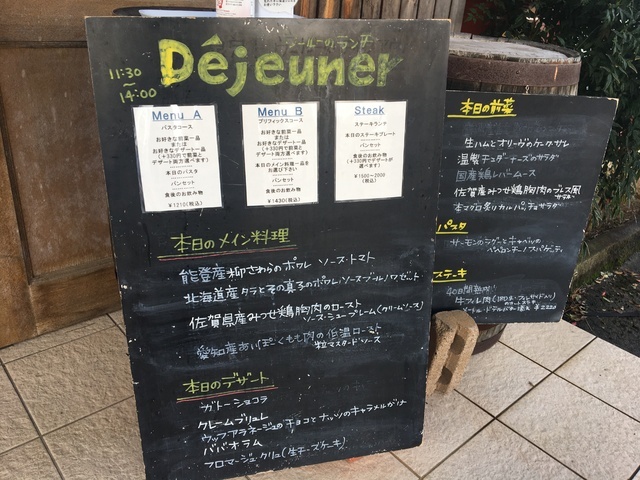 シールーこのランチ
11:30
〜
14:00
Déjeuner
Menu A
パスタコース
お好きな前菜一品
または
お好きなデザート一品
(+330円で前菜と
デザート両方選べます)
本日のパスタ
パンセット
食後のお飲み物
¥1210(税込)
Menu B
プリフィックスコース
お好きな前菜一品
または
お好きなデザート一品
(+330円で前菜と
デザート両方選べます)
本日のメイン料理一品を
お選び下さい
パンセット
食後のお飲み物
¥1430(税込)
Steak
ステーキランチ
本日のステーキプレート
パンセット
食後のお飲み物
(+330円でデザートが
選べます)
¥1500~2000
(税込)
本日のメイン料理
能登産柳さわらのポワレ ソース・トマト
北海道産タラとその真子のポワレ ソースブールノワゼット
佐賀県産みつせ鶏胸肉のロースト
ソース・シュープレーム(クリームソース)
愛知産あいぽーくもも肉の低温ロースト
粒マスタードソース
本日のデザート
ガトーショコラ
クレームブリュレ
ウッフアラネージュのチョコとナッツのキャラメルがけ
ババオラム
フロマージュ・クリュ(生チーズケーキ)
本日の前菜
生ハムとオリーブのケークサレ
温製チェダーチーズのサラダ
国産鶏レバームース
佐賀産みつせ鶏胸肉のプレス風
サラダ
本マグロ炙りカルパッチョサラダ
パスタ
サーモンのラグーとキャベツの
ペペロンチーノスパゲティ
ステーキ
40日間熟成!
¥2220